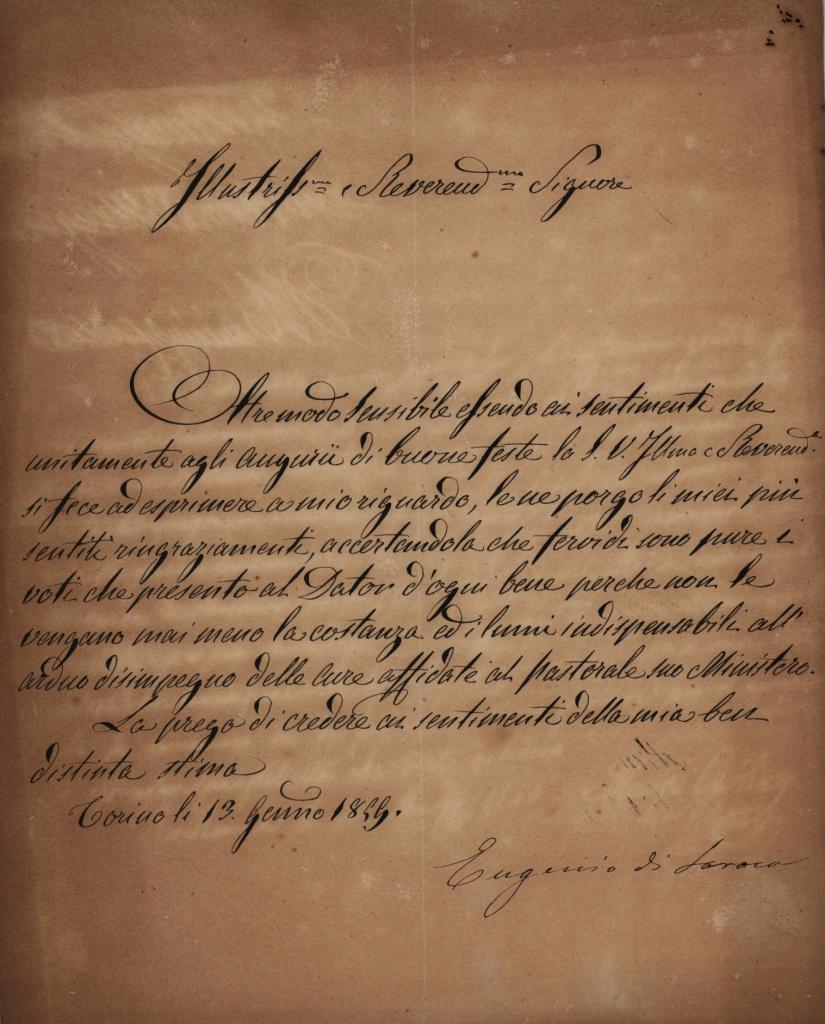 Illustriss.mo e Reverend.mo Signore
Oltremodo sensibile essendo ai sentimenti che
unitamente agli augurii di buone feste la S. V. Illma e Reverend.a
si fece ad esprimere a mio riguardo, le ne porgo li miei più
sentiti ringraziamenti, accertandola che fervidi sono pure i
voti che presento al Dator d'ogni bene perche non le
vengano mai meno la costanza ed i lumi indispensabili all'
arduo disimpegno delle cure affidate al pastorale suo Ministero.
La prego di credere ai sentimenti della mia ben
distinta stima
Torino li 13. Genno
Eugenio di Savoia